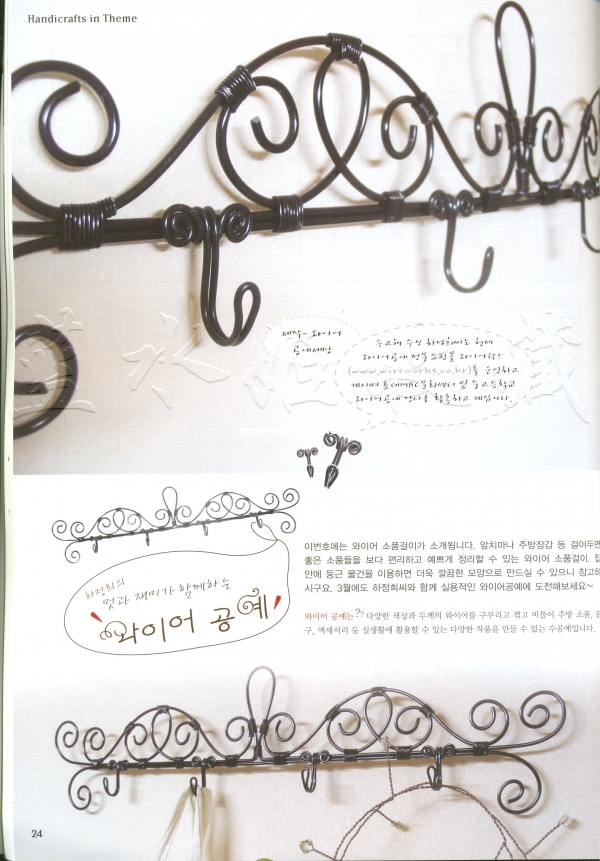 Handicrafts in Theme
제작- 와이어
공예세상
수고해 주신 하정희씨는 현재
와이어공예 전문쇼핑몰 와이어웍스
(www.wireworks.co.kr)를 운영하고
계시며 롯데MBC문화센터 및 중고등학교
와이어공예강사로 활동하고 계십니다.
하정희의
멋과 재미가 함께하는
와이어 공예
이번호에는 와이어 소품걸이가 소개됩니다. 앞치마나 주방장갑 등 걸어두면
좋은 소품들을 보다 편리하고 예쁘게 정리할 수 있는 와이어 소품걸이. 집
안에 둥근 물건을 이용하면 더욱 깔끔한 모양으로 만드실 수 있으니 참고해
시구요. 3월에도 하정희씨와 함께 실용적인 와이어공예에 도전해보세요~
와이어 공예는? 다양한 색상과 두께의 와이어를 구부리고 꼽고 비틀어 주방 소품, 문
구, 액세서리 등 실생활에 활용할 수 있는 다양한 작품을 만들 수 있는 수공예입니다.
24